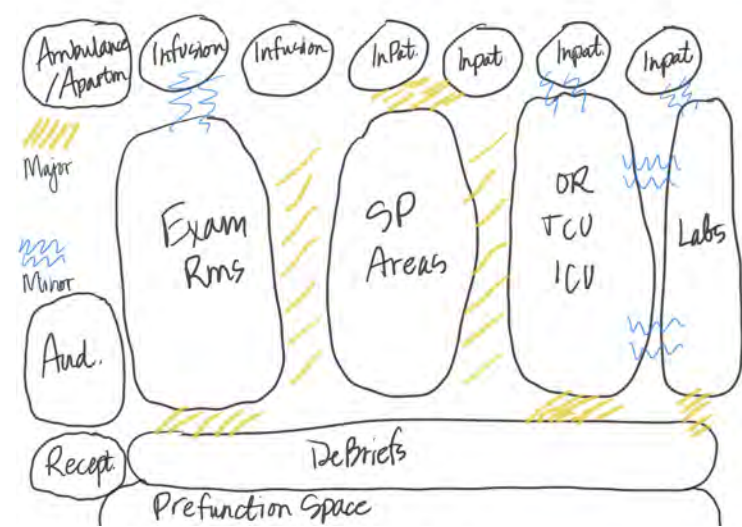 Ambulance
/Apartm
Infusion
Infusion
InPat.
Inpat
Inpat.
Inpat
Major
Minor
Exam
Rms
SP
Areas
OR
TCU
ICU
Labs
Aud.
Recept.
DeBriefs
Prefunction Space